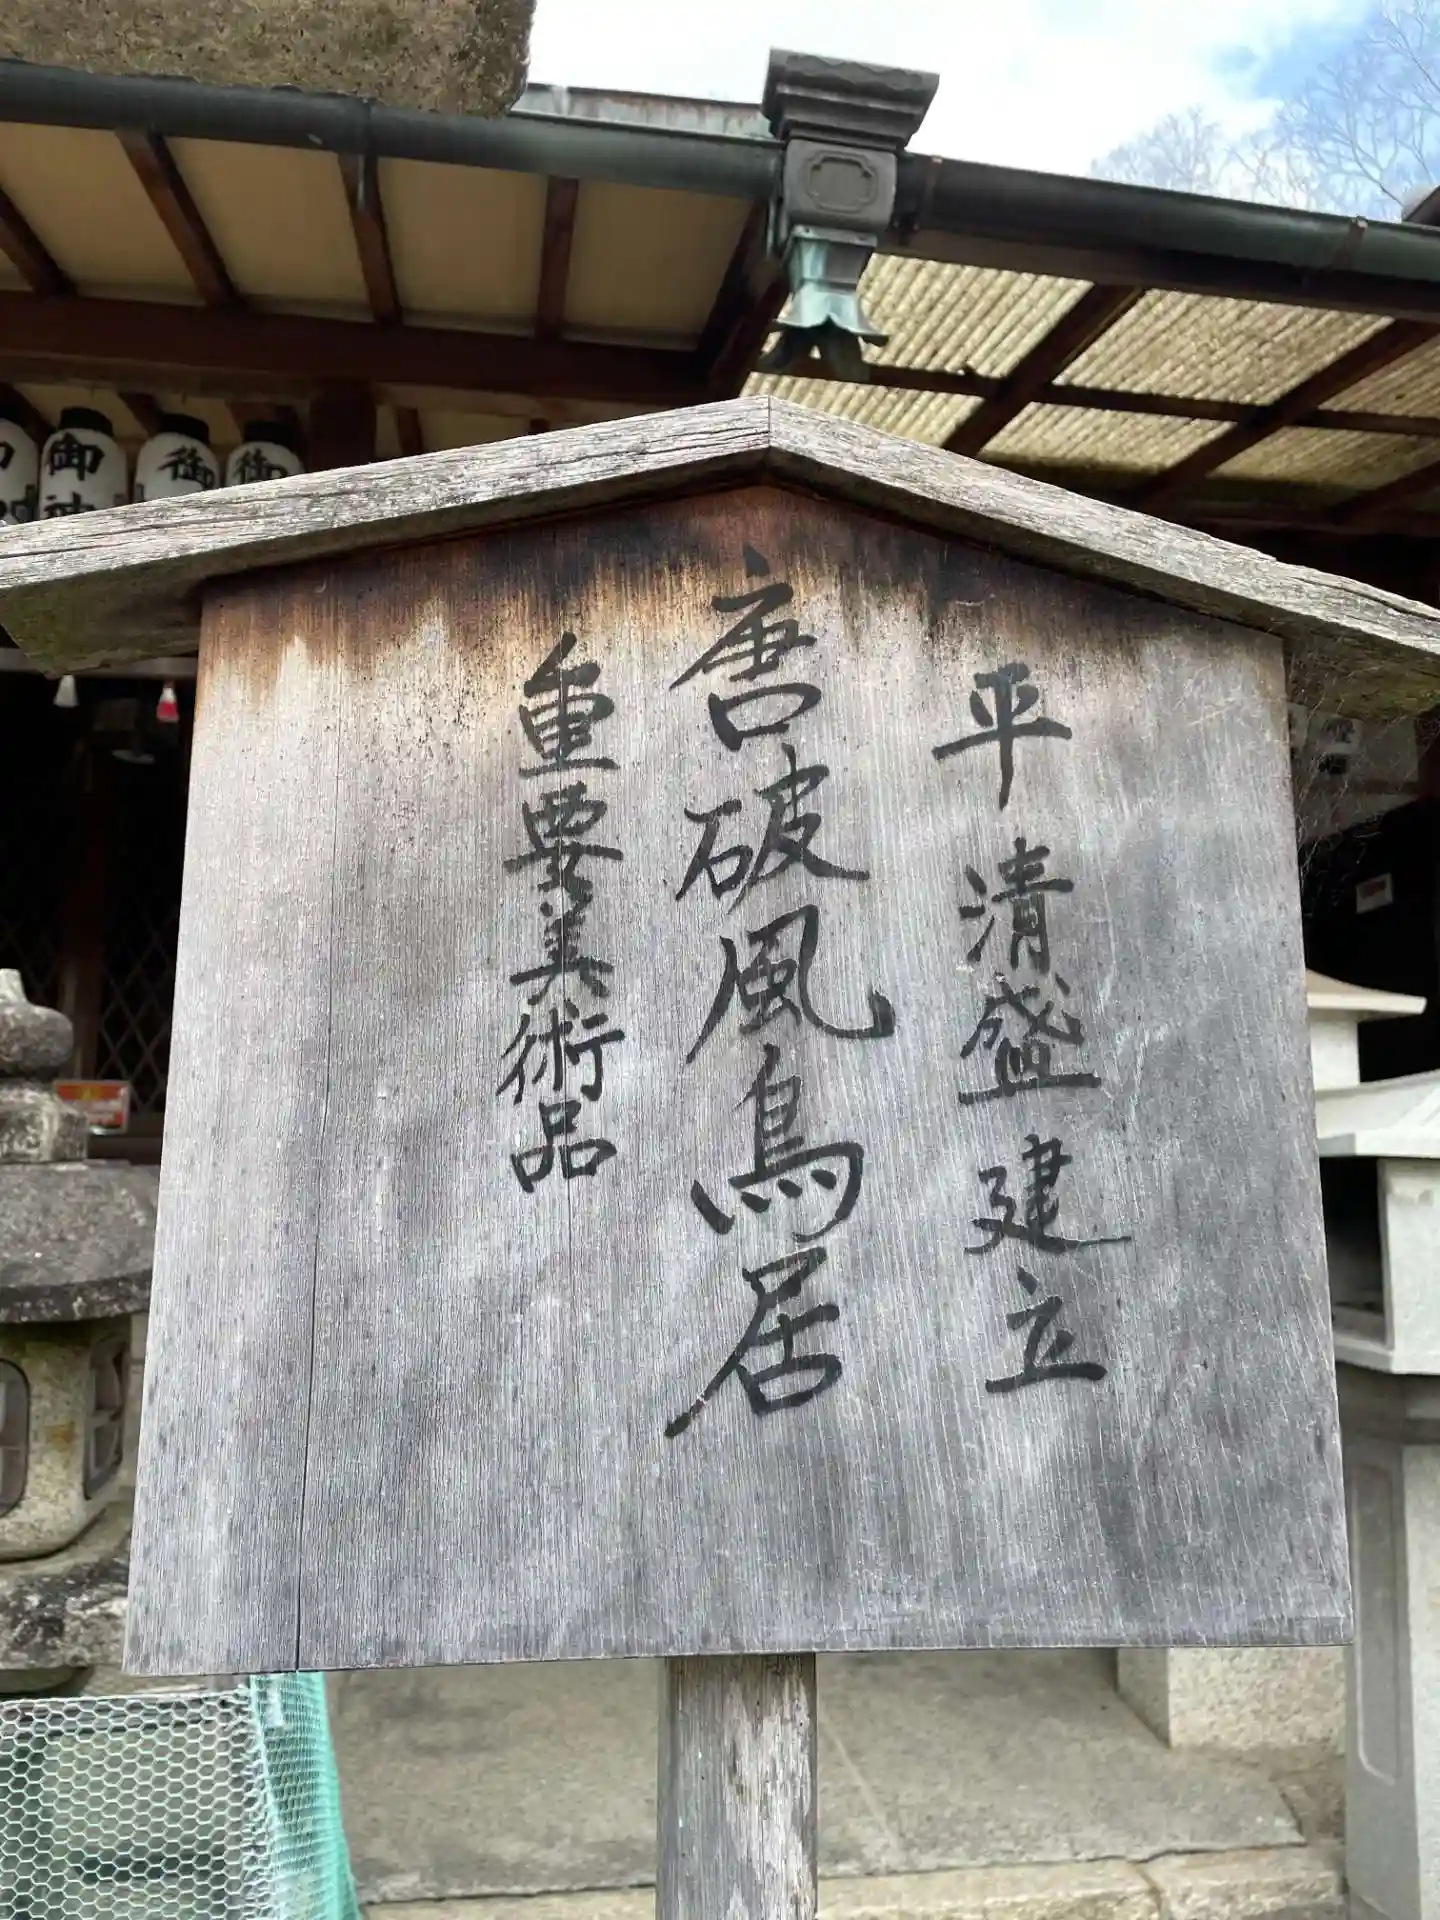 平清盛建立
唐破風鳥居
重要美術品
御
御
御